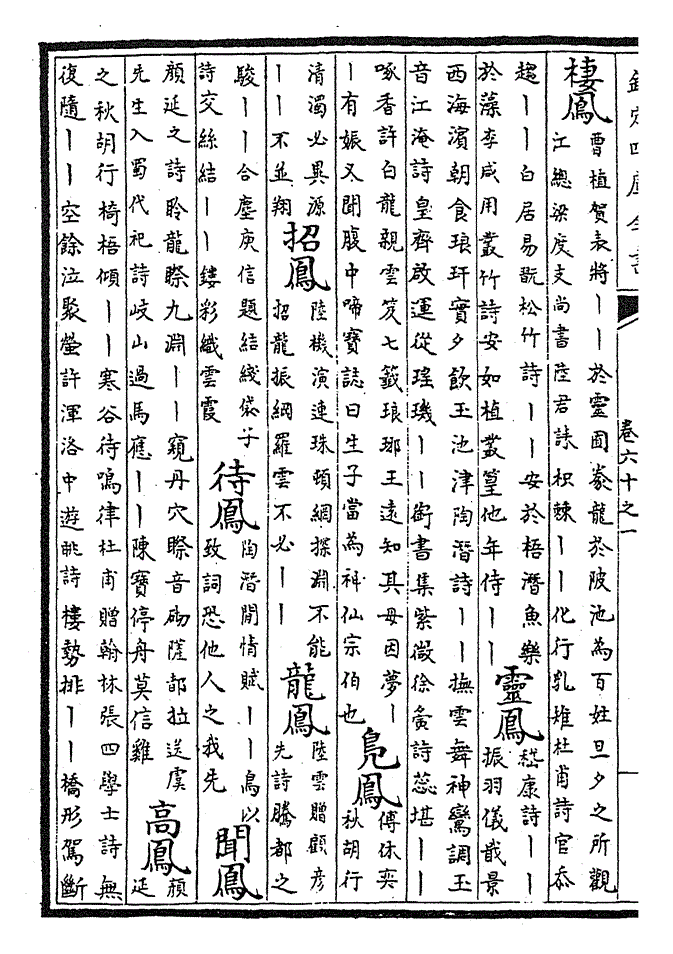 欽定四庫全書 卷六十之一
棲鳳 曹植賀表將丨丨於靈囿豢龍於陂池為百姓旦夕之所觀
江總梁度支尚書陸君誄枳棘丨丨化行乳雉杜甫詩官忝
趨丨丨白居易翫松竹詩丨丨安於梧潛魚樂
於藻李咸用叢竹詩安如植叢篁他年待丨丨
靈鳳 嵇康詩丨丨
振羽儀戢景
西海濱朝食琅玕實夕飲玉池津陶潛詩丨丨撫雲舞神鸞調玉
音江淹詩皇齊啟運從瑤璣丨丨銜書集紫微徐夤詩蕊堪丨丨
啄香許白龍親雲笈七籤琅琊王遠知其母因夢丨
丨有娠又聞腹中啼寶誌曰生子當為神仙宗伯也
鳧鳳 傅休奕
秋胡行
清濁必異源
丨丨不並翔
招鳳 陸機演連珠頓網探淵不能
招龍振綱羅雲不必丨丨
龍鳳 陸雲贈顧彦
先詩騰都之
駿丨丨合塵庾信題結綫袋子
詩交絲結丨丨鏤彩織雲霞
待鳳 陶潛閒情賦丨丨鳥以
致詞恐他人之我先
聞鳳
顔延之詩聆龍䁮九淵丨丨窺丹穴䁮音砌薩都拉送虞
先生入蜀代祀詩岐山過馬應丨丨陳寶停舟莫信雞
高鳳 顔
延
之秋胡行椅梧傾丨丨寒谷待鳴律杜甫贈翰林張四學士詩無
復隨丨丨空餘泣聚螢許渾洛中遊眺詩樓勢排丨丨橋形駕斷